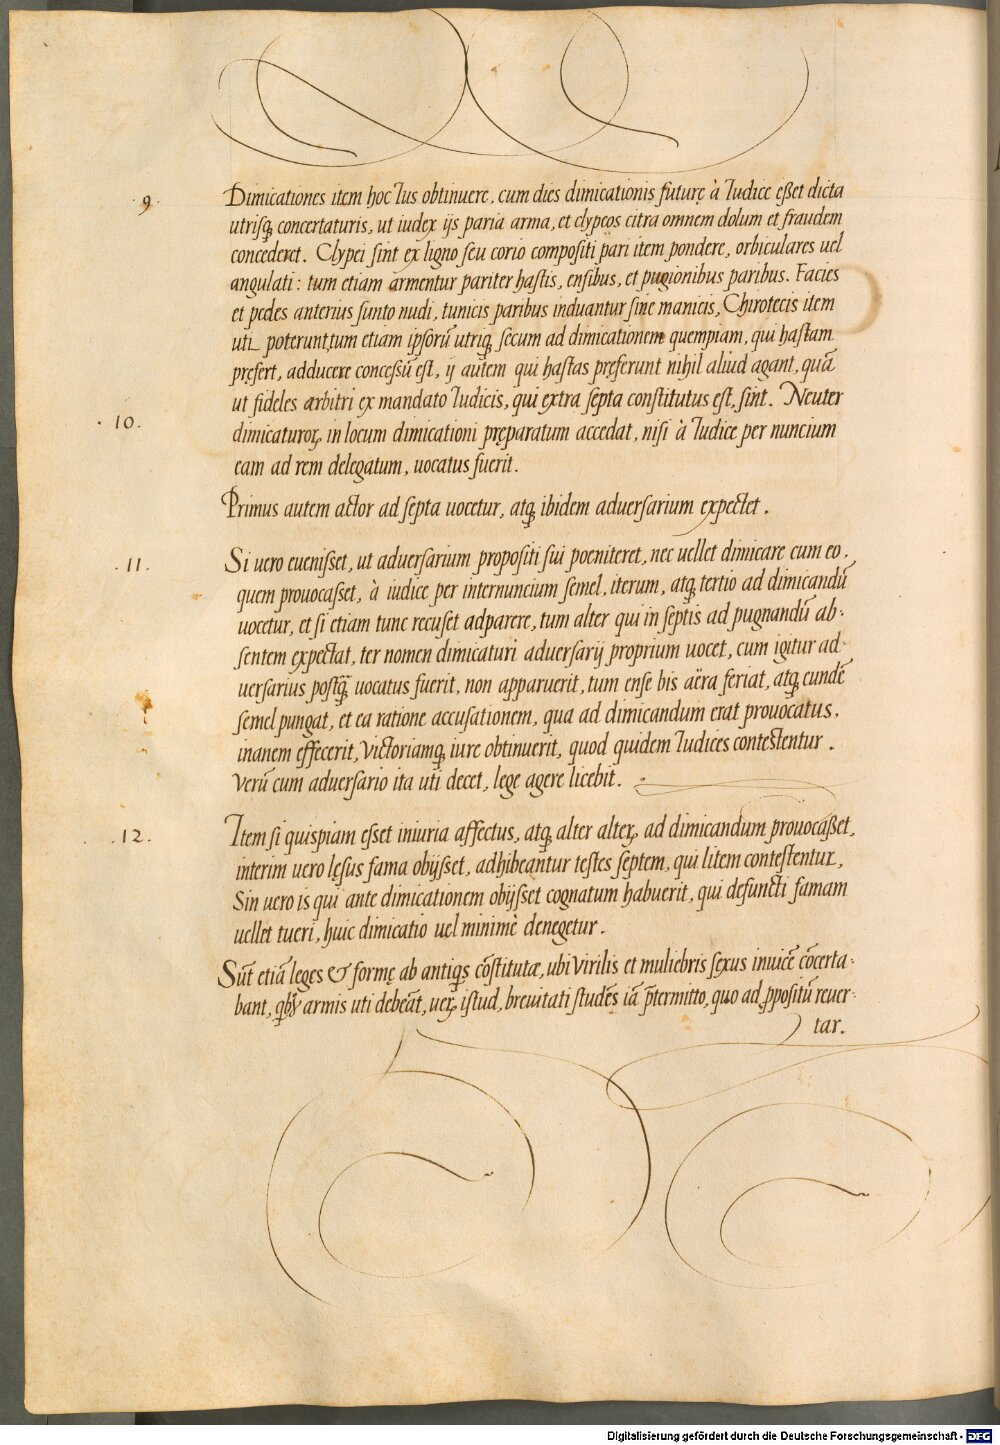 9. Dimicationes item hoc Ius obtinuere, cum dies dimicationis futurę à Iudice eßet dicta
utrisq́; concertaturis, ut iudex ijs paria arma, et clypeos citra omnem dolum et fraudem
concederet. Clypei sint ex ligno seu corio compositi pari item pondere, orbiculares uel
angulati: tum etiam armentur pariter hastis, ensibus, et pugionibus paribus. Facies
et pedes anterius sunto nudi, tunicis paribus induantur sine manicis, Chirotecis item
uti poterunt, tum etiam ipsorũ utriq́; secum ad dimicationem quempiam, qui hastam
pręfert, adducere concessũ est, ij autem qui hastas pręferunt nihil aliud agant, quã
ut fideles arbitri ex mandato Iudicis, qui extra septa constitutus est, sint. Neuter
10. dimicaturoꝝ in locum dimicationi pręparatum accedat, nisi à Iudice per nuncium
eam ad rem delegatum, uocatus fuerit.
Primus autem actor ad septa uocetur, atq́; ibidem aduersarium expectet.
11. Si uero euenisset, ut aduersarium propositi sui poeniteret, nec uellet dimicare cum eo,
quem prouocasset, à iudice per internuncium semel, iterum, atq́; tertio ad dimicandũ
uocetur, et si etiam tunc recuset adparere, tum alter qui in septis ad pugnandũ ab-
sentem expectat, ter nomen dimicaturi aduersarij proprium uocet, cum igitur ad-
uersarius postq̃; uocatus fuerit, non apparuerit, tum ense bis aëra feriat, atq́; eundẽ
semel pungat, et ea ratione accusationem, qua ad dimicandum erat prouocatus,
inanem effecerit, Victoriamq́; iure obtinuerit, quod quidem Iudices contestentur.
Verũ cum aduersario ita uti decet, lege agere licebit.
12. Item si quispiam esset iniuria affectus, atq́; alter alteꝝ ad dimicandum prouocaßet,
interim uero lęsus fama obijsset, adhibeantur testes septem, qui litem contestentur,
Sin uero is qui ante dimicationem obijsset cognatum habuerit, qui defuncti famam
uellet tueri, huic dimicatio uel minimè denegetur.
Sũt etiã leges & formę ab antiq́s cõstitutæ, ubi Virilis et muliebris sexus inuicẽ cõcerta-
bant, qͥbꝰ armis uti debeãt, ueꝝ istud, breuitati studẽs iã p̃termitto, quo ad ꝓpositũ reuer-
tar.
Digitalisierung gefördert durch die Deutsche Forschungsgemeinschaft - DFG